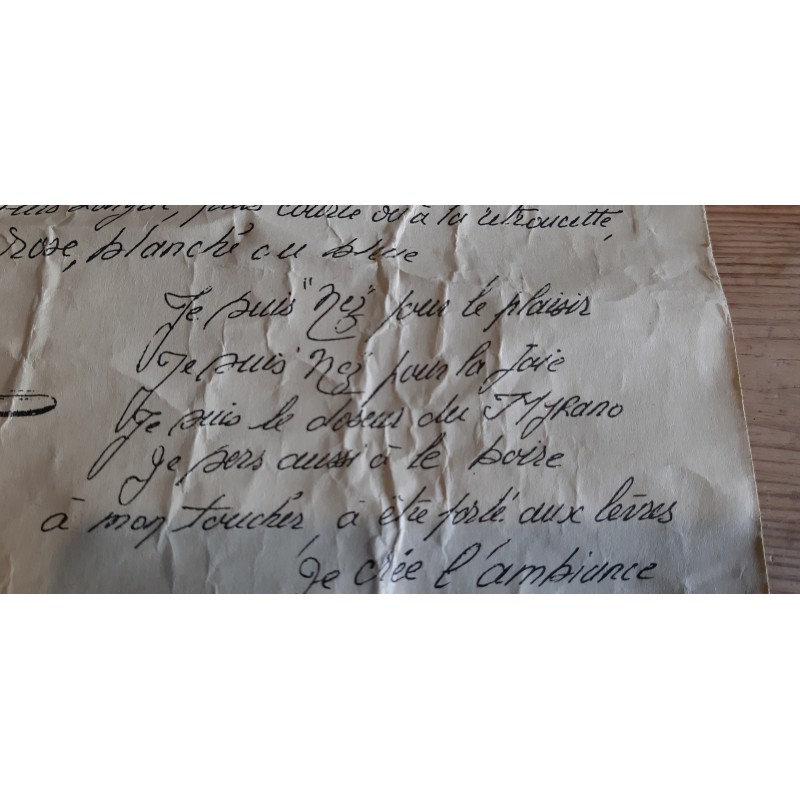 longue, plus courte ou à la retroucette,
rose, blanche ou bleue
Je suis "Nez" pour le plaisir
Je suis "Nez" pour la Joie
Je suis le doseur du Myrano
Je sers aussi à le boire
à mon toucher, à être porté aux lèvres
Je crée l'ambiance